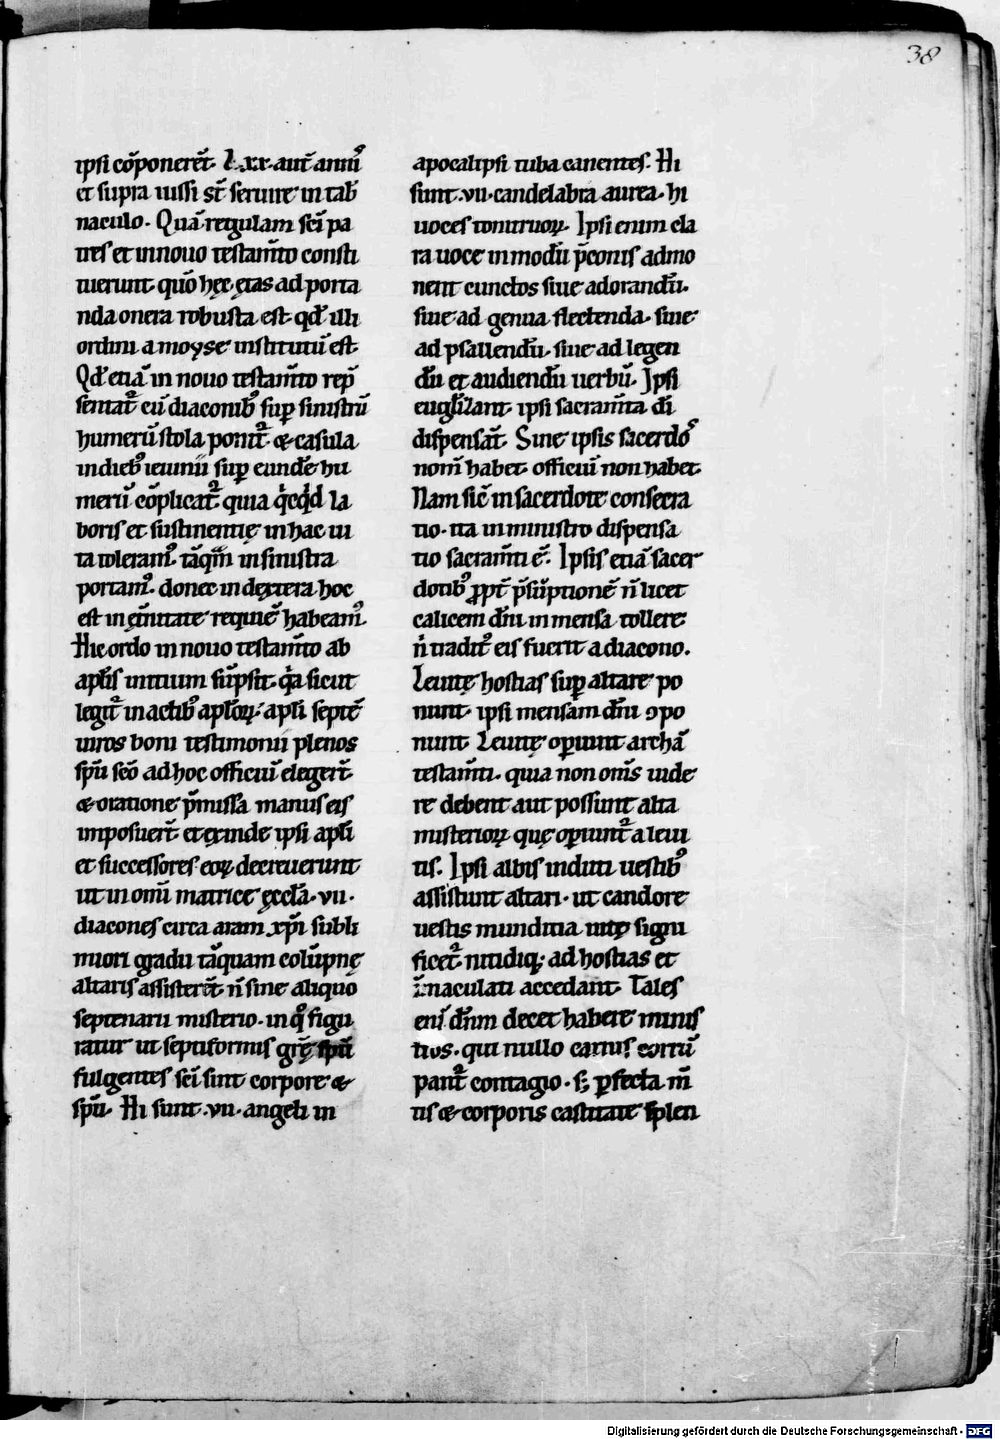 38
ipsi cōponerēt· Lxx· aut̄ annuꝰ
et supra iussi st̄ seruire in tab̄
naculo· Quā regulam sc̄i pa
tres et in nouo testam̄to consti
tuerunt· quō hęc ętas ad porta
nda onera robusta est· qđ illi
ordini a moyse institutū est·
Qđ etiā in nouo testam̄to rep̄
sentat᷑ cū diaconibꝰ suꝑ sinistrū
humerū stola ponit᷑· & casula
in diebꝰ ieiunii suꝑ eundē hu
merū cōplicat᷑· quia q̇cq̇d la
boris et sustinentię in hac ui
ta toleramꝰ· tāq̄m in sinistra
portamꝰ· donec in dextera hoc
est in ęt̄nitate requiē habeamꝰ·
Hic ordo in nouo testam̄to ab
apl̄is initium sūpsit· q̇a sicut
legit᷑ in actibꝰ apl̄oꝝ· apl̄i septē
uiros boni testimonii plenos
sp̄u sc̄o ad hoc officiū elegert̄·
& oratione p̄missa manus eis
imposuert̄· et exinde ipsi apl̄i
et successores eoꝝ decreuerunt
ut in omi matrice ęccl̄a· vii·
diacones circa aram xp̄i subli
miori gradu tāquam colūpnę
altaris assisterēt· n̄ sine aliquo
septenarii misterio· in qͦ figu
ratur ut septiformis gr̄ę sp̄u
fulgentes sc̄i sint corpore &
sp̄u· Hi sunt ·vii· angeli in
apocalipsi tuba canentes· Hi
sunt ·vii· candelabra aurea· hi
uoces tonitruoꝝ· Ipsi enim cla
ra uoce in modū p̄conis admo
nent cunctos siue adorandū·
siue ad genua flectenda· siue
ad psallendū· siue ad legen
dū et audiendū uerbū· Ipsi
eugl̄izant· ipsi sacram̄ta dī
dispensāt· Sine ipsis sacerdoꝰ
nom̄ habet· officiū non habet·
Nam sic̄ in sacerdote consecra
tio· ita in ministro dispensa
tio sacram̄ti ē· Ipsis etiā sacer
dotibꝰ ꝓpt̄ p̄sūptionē n̄ licet
calicem dn̄i in mensa tollere
n̄ traditꝰ eis fuerit a diacono·
Leuitę hostias suꝑ altare po
nunt· ipsi mensam dn̄i ꝯpo
nunt· Leuitę oꝑiunt archā
testam̄ti· quia non om̄s uide
re debent aut possunt alta
misterioꝝ quę oꝑiunt᷑ a leui
tis· Ipsi albis induti uestibꝰ
assistunt altari· ut candore
uestis munditia uitę signi
ficet᷑· nitidiq; ad hostias et
īmaculati accedant· Tales
enī dn̄m decet habere minis
tros· qui nullo carnis corrū
pant᷑ contagio· s; ꝑfecta m̄
tis & corporis castitate splen
Digitalisierung gefördert durch die Deutsche Forschungsgemeinschaft - DFG